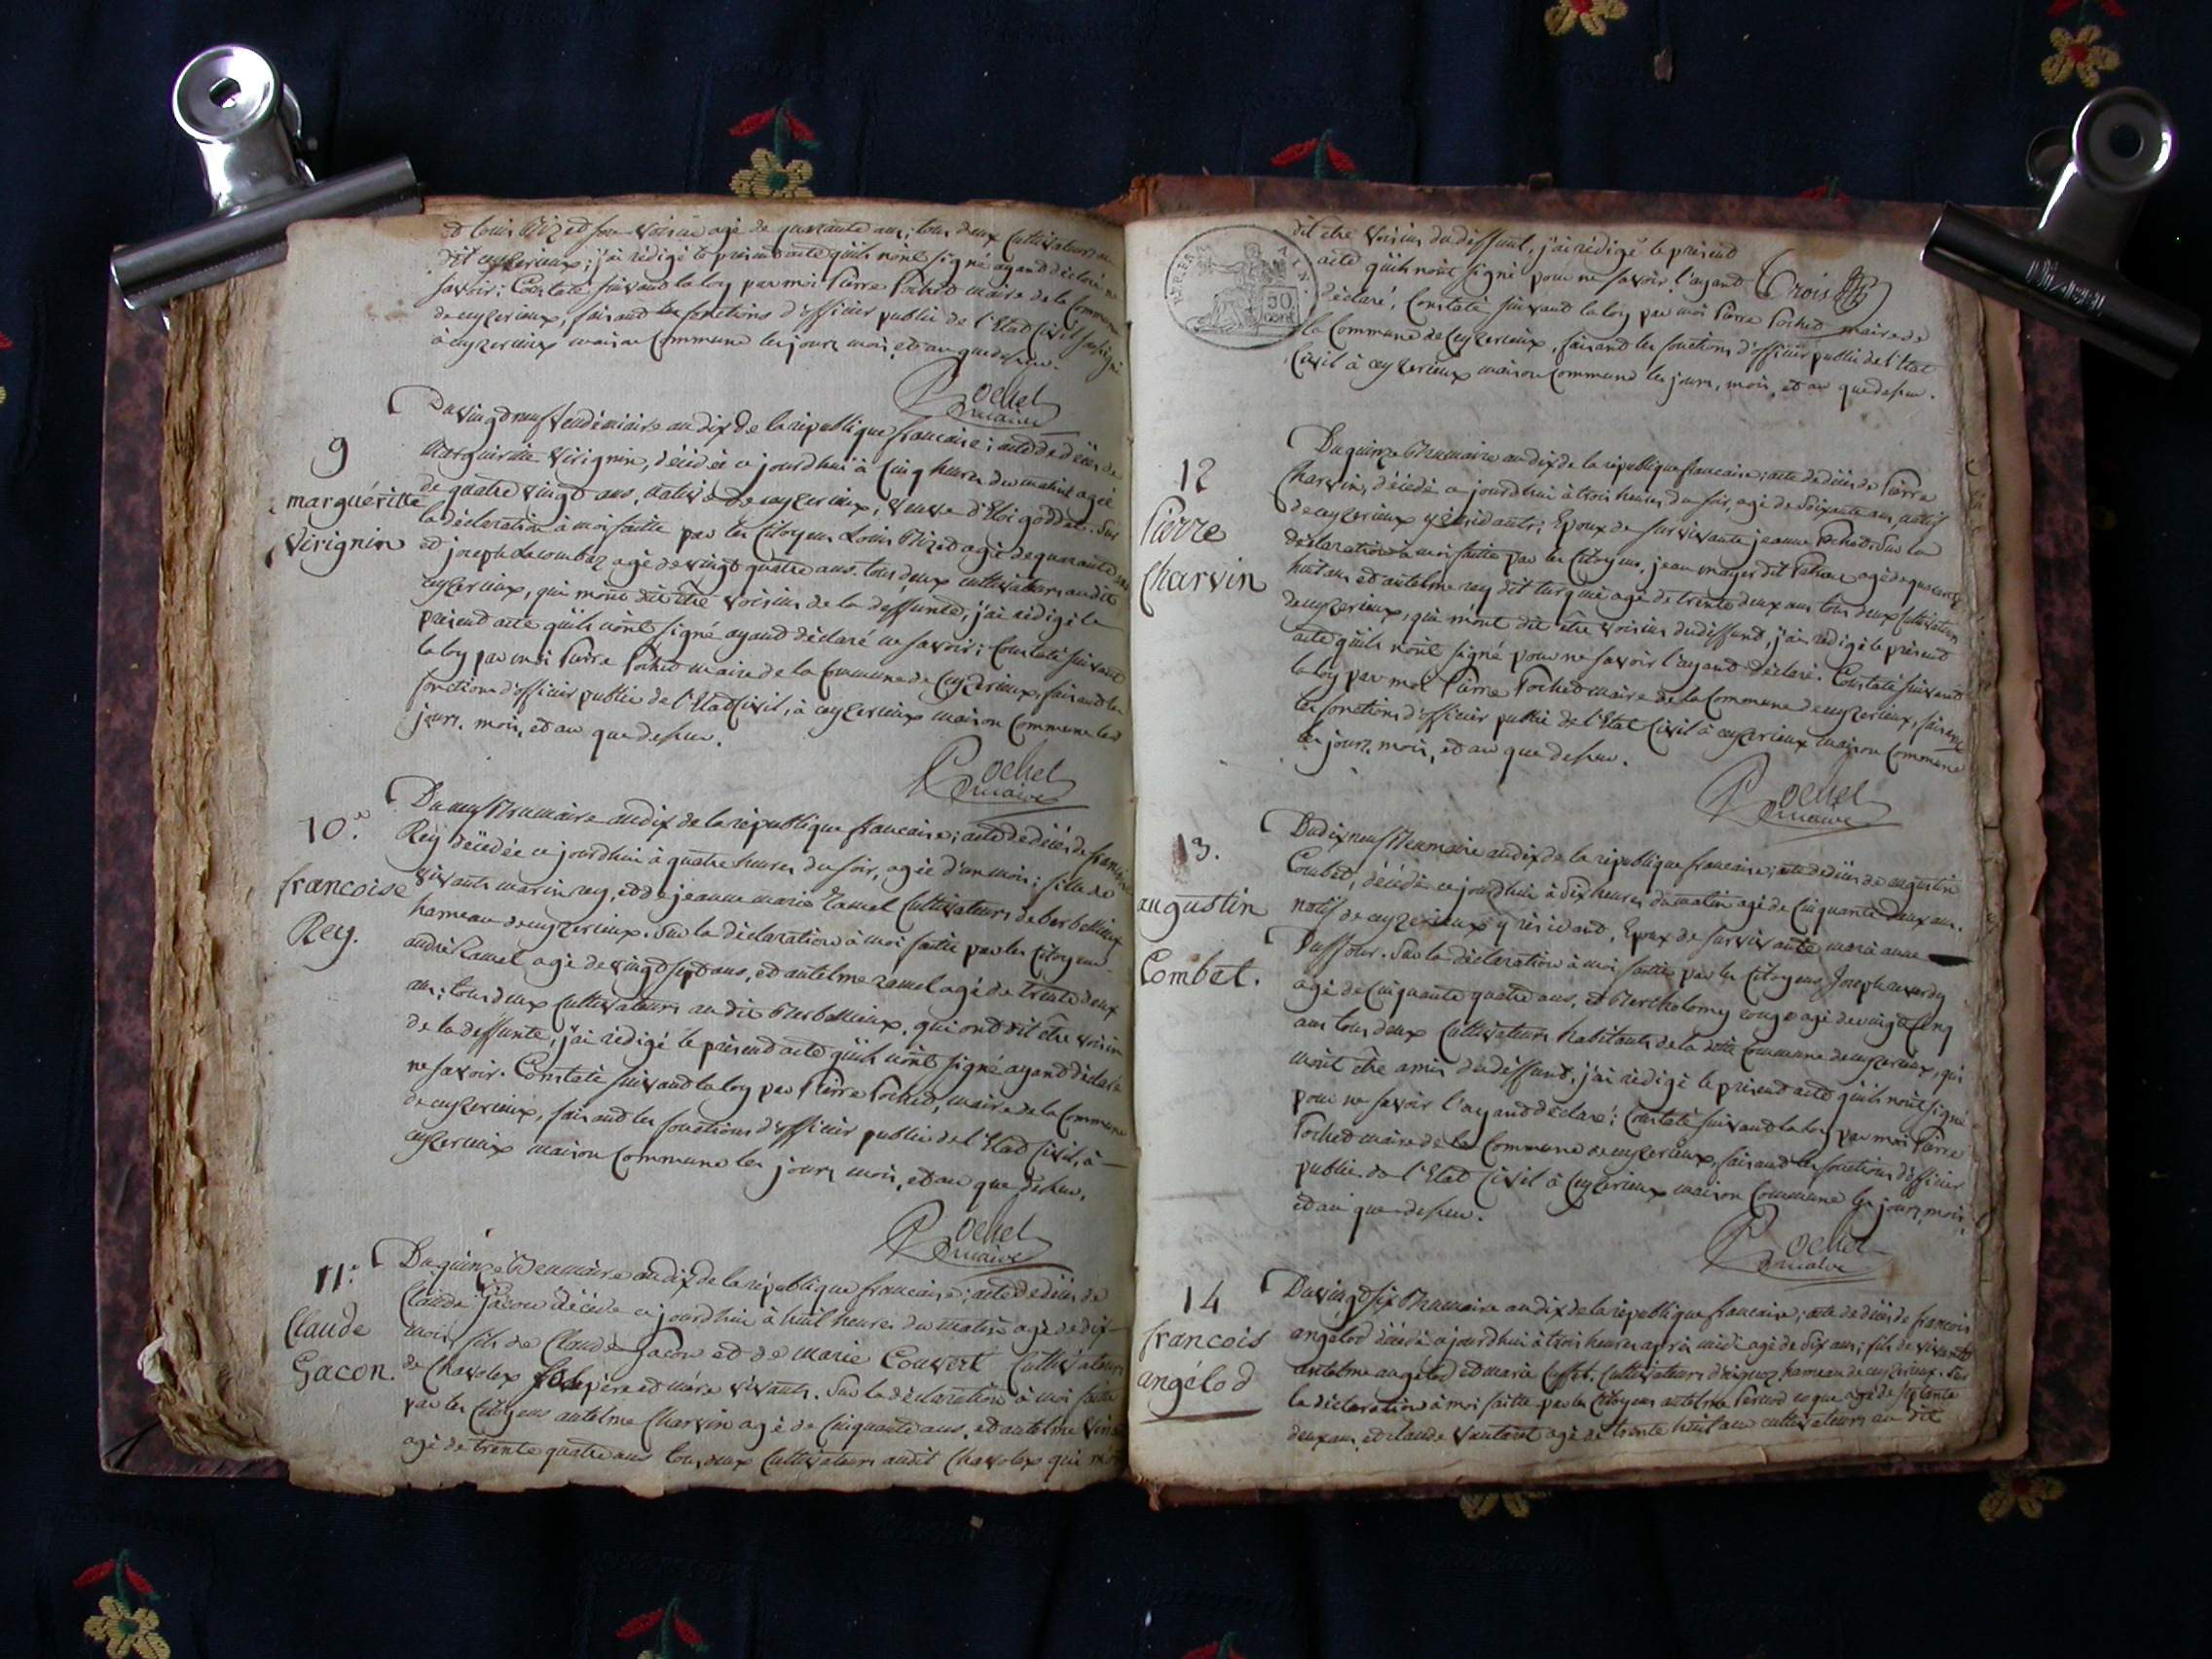 et louis Bized son voisin agé de quarante ans, tous deux Cultivateurs au
dit ceyzerieux; j'ai rédigé le présend acte qu'ils nônt signé ayand déclaré ne
savoir; Constaté suivand la loy par moi Pierre Pochet maire de la Commune
de ceyzerieux, faisand les fonctions d'officier public de l'Etad Civil soussigné
à ceyzerieux maison Commune les jours mois, et an que dessus.
Pochet
maire
9
marguéritte
Virignin
Du vingt neuf Vendémiaire an dix de la république francaise; acte de décès de
Marguéritte Virignin, décédée ce jourdhui à Cinq heures du matin agée
de quatre vingt ans, native de ceyzerieux, Veuve d'Eloi goddet. Sur
la déclaration à moi faitte par les Citoyens Louis Bized agé de quarante ans
et joseph Lacombaz agé de vingt quatre ans, tous deux cultivateurs au dit
ceyzerieux, qui m'ont dit être voisins de la deffunte, j'ai rédigé le
présend acte qu'ils nônt signé ayand déclaré ne savoir; Constaté suivand
la loy par moi Pierre Pochet maire de la Commune de Ceyzerieux, faisand les
fonctions d'officier public de l'Etad Civil, à ceyzerieux maison Commune les
jours, mois, et an que dessus.
Pochet
maire
10.e
francoise
Rey.
Du neuf Brumaire an dix de la république francaise; acte de décès de francoise
Rey décédée ce jourdhui à quatre heures du soir, agée d'un mois; fille de
vivants marin rey, et de jeanne marie Ramel Cultivateurs de berbellieux
hameau de ceyzerieux. Sur la déclaration à moi faitte par les Citoyens
andré Ramel agé de vingt sept ans, et antelme ramel agé de trente deux
ans; tous deux Cultivateurs au dit Berbellieux, qui ont dit être voisin
de la deffunte, j'ai rédigé le présend acte qu'ils nônt signé ayand déclaré
ne savoir. Constaté suivand la loy par Pierre Pochet, maire de la Commune
de ceyzerieux, faisand les fonctions d'officier public de l'Etad Civil, à
ceyzerieux maison Commune les jours, mois, et an que dessus.
Pochet
maire
11.e
Claude
Gacon.
Du quinze Brumaire an dix de la république francaise; acte de décès de
Claude Gacon décédé ce jourdhui à huit heures du matin agé de dix
mois, fils de Claude Gacon et de Marie Couvert Cultivateurs
de Chavolex père et mère vivants. Sur la déclaration à moi faitte
par les Citoyens antelme Charvin agé de Cinquante ans, et antelme
agé de trente quatre ans tous deux Cultivateurs audit Chavolex qui m'ont
dit être voisins du deffunt, j'ai rédigé le présend
acte qu'ils nônt signé pour ne savoir l'ayand
Trois
déclaré, Constaté suivand la loy par moi Pierre Pochet maire de
la Commune de Ceyzerieux, faisand les fonctions d'officier public de l'Etat
Civil à ceyzerieux maison Commune les jours, mois, et an que dessus.
AIN
50
CENT
12
Pierre
Charvin
Du quinze Brumaire an dix de la république francaise; acte de décès de Pierre
Charvin, décédé ce jourdhui à trois heures du soir, agé de Soixante ans, natif
de ceyzerieux y résidant; Epoux de survivante jeanne Pochet. Sur la
déclaration à moi faitte par les Citoyens, jean mager dit Patrian agé de quarante
huit ans et antelme rey dit turque agé de trente deux ans tous deux Cultivateurs
de ceyzerieux, qui m'ont dit être voisins du deffund, j'ai rédigé le présend
acte qu'ils nônt signé pour ne savoir l'ayand déclaré. Constaté suivand
la loy par moi Pierre Pochet maire de la Commune de ceyzerieux, faisand
les fonctions d'officier public de l'Etat Civil à ceyzerieux maison Commune
les jours, mois, et an que dessus.
Pochet
maire
13.
augustin
Combet.
Du dix neuf Brumaire an dix de la république francaise; acte de décès de augustin
Combet, décédé ce jourdhui à Six heures du matin agé de Cinquante deux ans.
natif de ceyzerieux y résidand, Epoux de survivante marie anne
Duffour. Sur la déclaration à moi faitte par les Citoyens Joseph
agé de Cinquante quatre ans, et Bertholomy rouge agé de vingt Cinq
ans tous deux Cultivateurs habitants de la ditte Commune de ceyzerieux, qui
m'ont être amis du deffund, j'ai rédigé le présend acte qu'ils nont signé
pour ne savoir l'ayand déclaré; Constaté suivand la loy par moi Pierre
Pochet maire de la Commune de ceyzerieux, faisand les fonctions d'officier
public de l'Etad Civil à Ceyzerieux maison Commune les jours, mois,
et an que dessus.
Pochet
maire
14
francois
angélod
Du vingt Six Brumaire an dix de la république francaise; acte de décès de francois
angelod décédé ce jourdhui à trois heures après midi agé de Six ans; fils de vivants
antelme angélod et marie Cuffet. Cultivateurs d'aignoz hameau de ceyzerieux. Sur
la déclaration à moi faitte par les Citoyens antelme agé de Septante
deux ans, et claude Vautaret agé de trente huit ans cultivateurs au dit